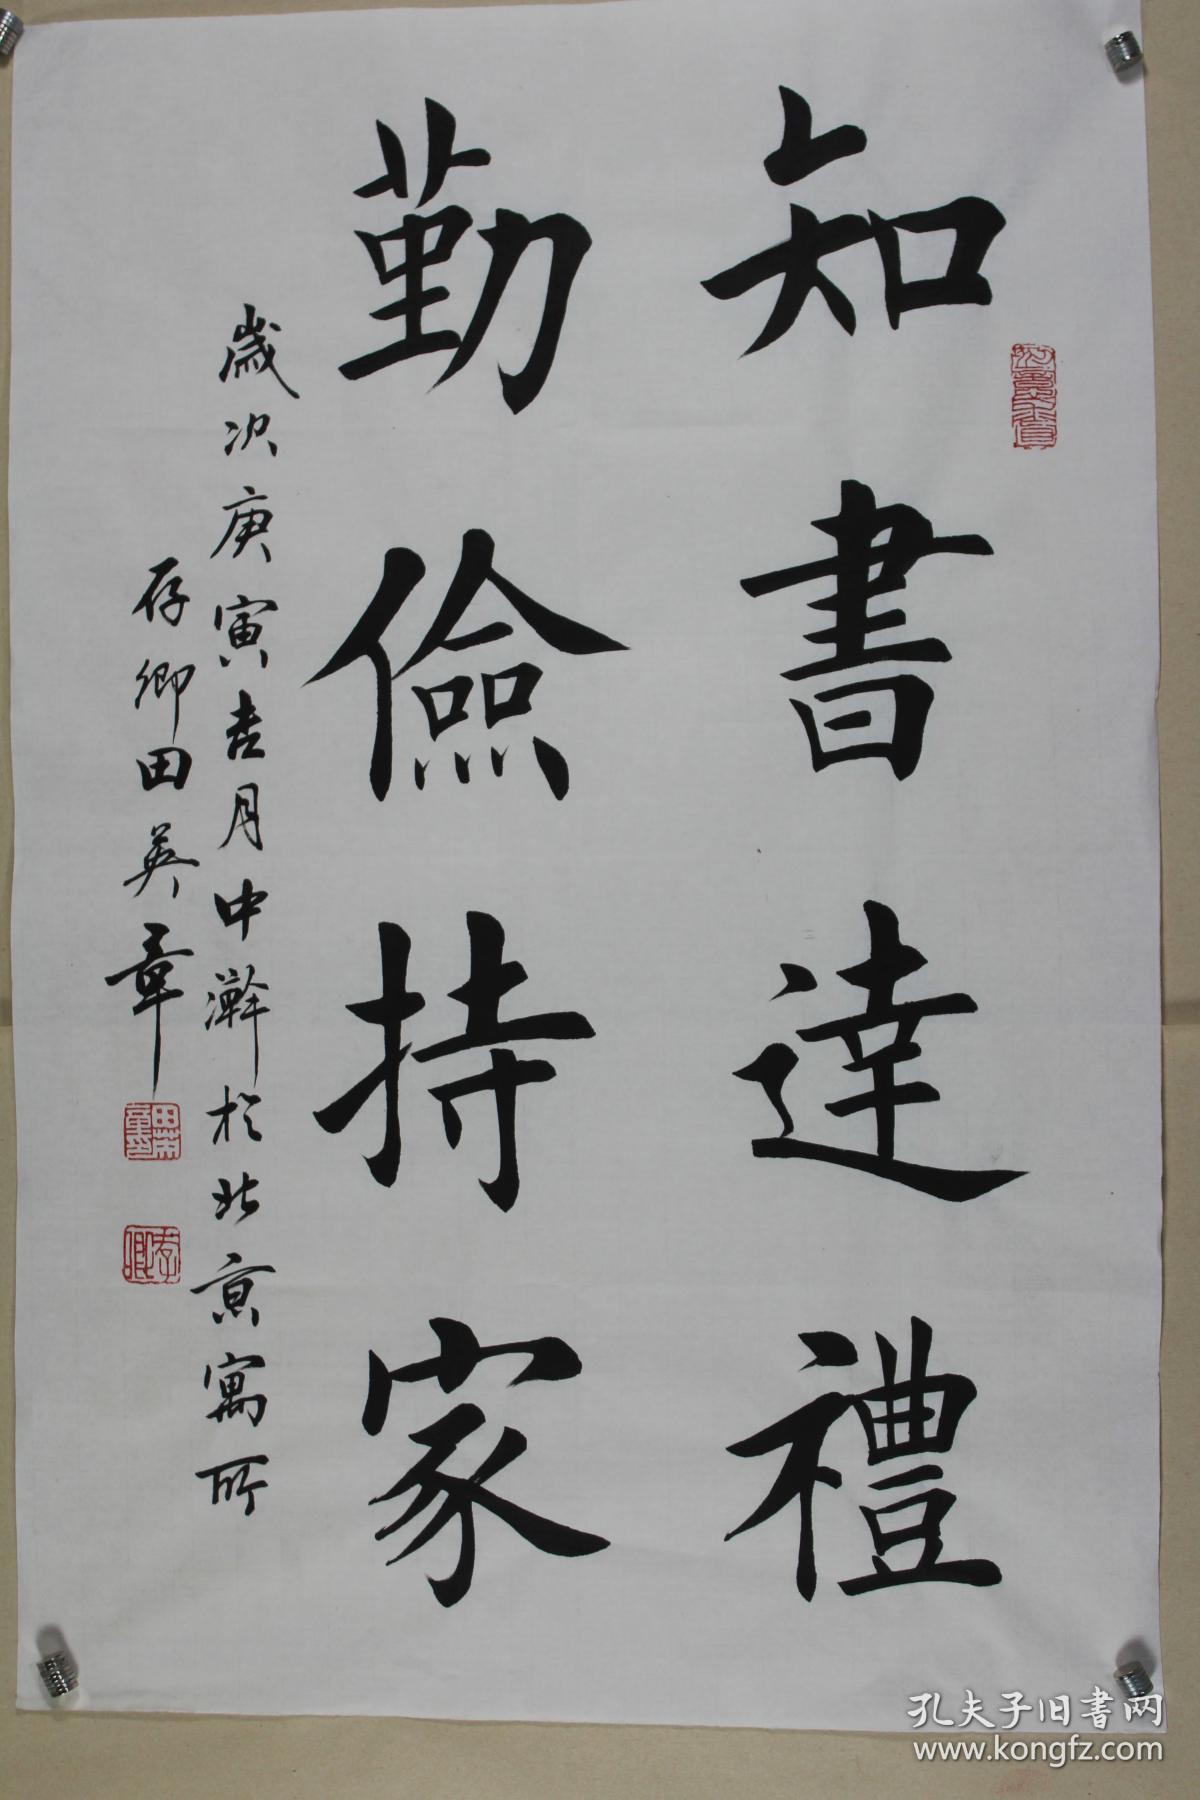 知書達禮
勤儉持家
歲次庚寅吉月中澣於北京寓所
存卿田英章
孔夫子旧书网
www.kongfz.com